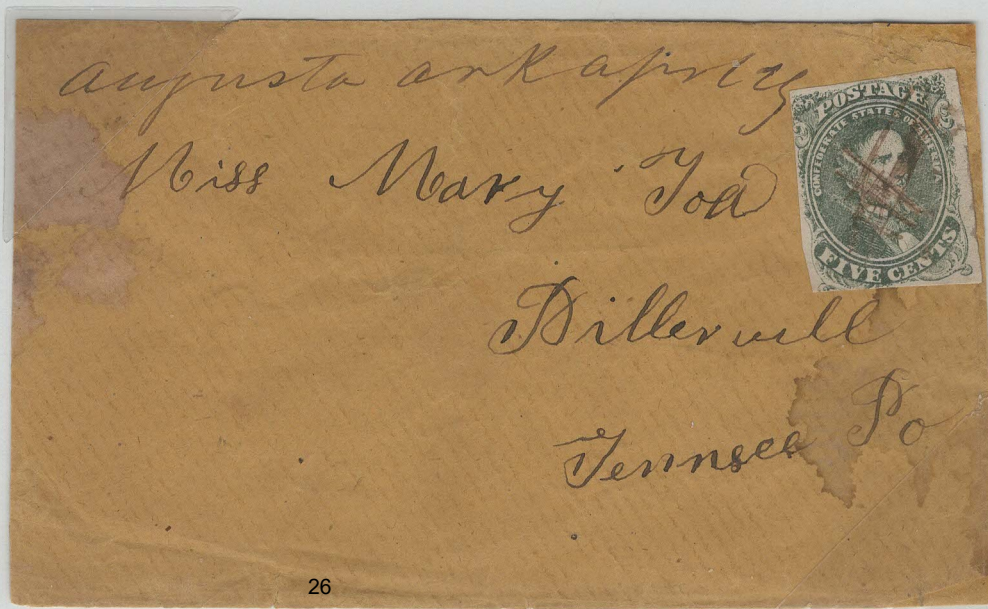 augusta ark april 23
POSTAGE
CONFEDERATE STATES OF AMERICA
FIVE CENTS
Miss Mary Tod
Dillervill
Tennsee Po
26